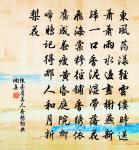 東風蕩漾輕雲縷時送
蕭蕭雨水邊臺榭燕新
歸一口香泥濕帶落花
飛海棠糝徑鋪香繡依
舊成春瘦黃昏庭院柳
啼鴉記得那人和月折
梨花
陳亮虞美人春愁經典
國學